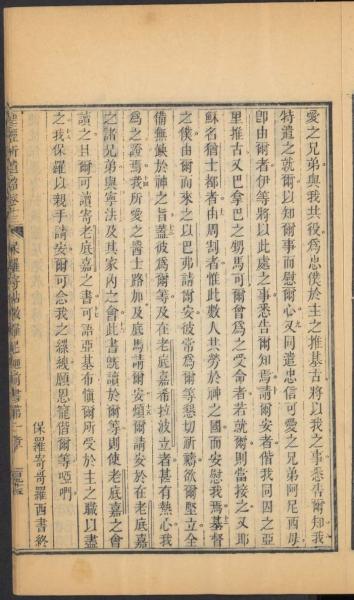 愛之兄弟與我共役爲忠僕於主之推基古將以我之事悉告爾知我
特遣之就爾以知爾事而慰爾心又同遣忠信可愛之兄弟阿尼西母
卽由爾者伊等將以此處之事悉告爾知焉請爾安者偕我同囚之亞
里推古又巴拿巴之甥馬可爾曾爲之受命者若就爾則當接之又耶
穌名猶士都者由周割者惟此數人共勞於神之國而安慰我焉基督
之僕由爾而來之以巴弗請爾安彼常爲爾等懇切祈禱欲爾堅立全
備無缺於神之旨蓋彼爲爾等及在老底嘉希拉波立者甚有熱心我
爲之證焉我所愛之醫士路加及底馬請爾安煩爾請安於在老底嘉
之諸兄弟與寧法及其家內之會此書旣讀於爾等則使老底嘉之會
讀之且爾可讀寄老底嘉之書可語亞基布愼爾所受於主之職以盡
之我保羅以親手請安爾可念我之縲絏願恩寵偕爾等啞𠵽
保羅寄哥羅西書終